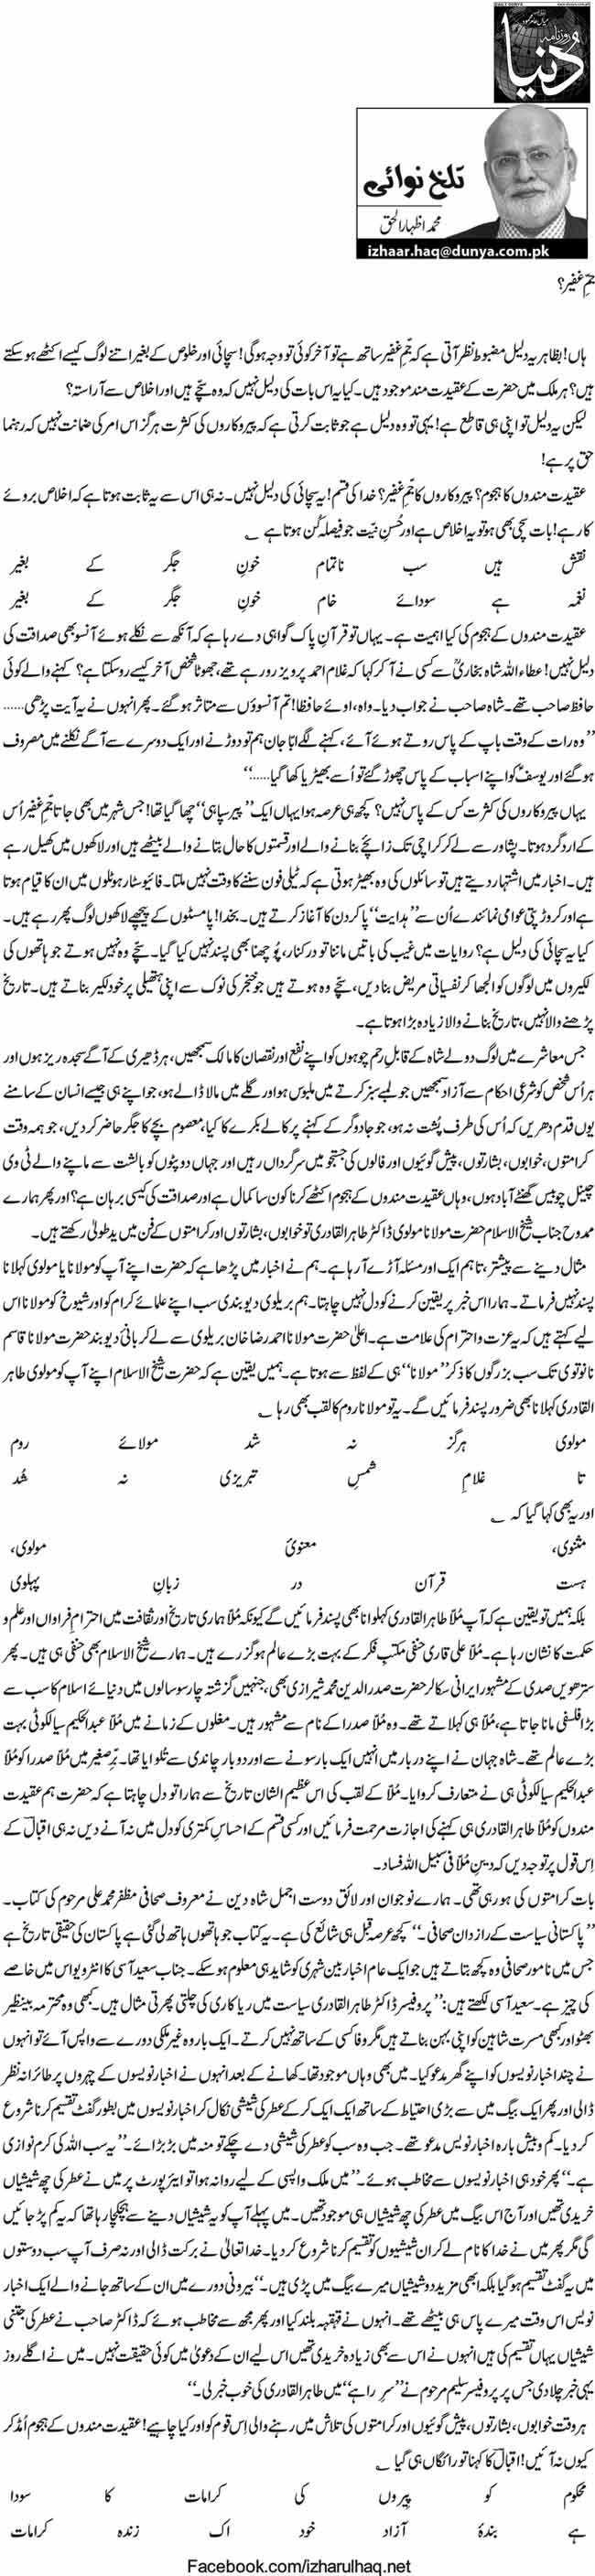 DAILY DUNYA
روزنامہ
دُنیا
تلخ نوائی
محمد اظہارالحق
izhaar.haq@dunya.com.pk
جمِّ غفیر؟
ہاں! بظاہر یہ دلیل مضبوط نظر آتی ہے کہ جمِّ غفیر ساتھ ہے تو آخر کوئی تو وجہ ہوگی! سچائی اور خلوص کے بغیر اتنے لوگ کیسے اکٹھے ہو سکتے
ہیں؟ ہر ملک میں حضرت کے عقیدت مند موجود ہیں۔ کیا یہ اس بات کی دلیل نہیں کہ وہ سچے ہیں اور اخلاص سے آراستہ؟
لیکن یہ دلیل تو اپنی ہی قاطع ہے! یہی تو وہ دلیل ہے جو ثابت کرتی ہے کہ پیروکاروں کی کثرت ہرگز اس امر کی ضمانت نہیں کہ رہنما
حق پر ہے!
عقیدت مندوں کا ہجوم؟ پیروکاروں کا جمِّ غفیر؟ خدا کی قسم! یہ سچائی کی دلیل نہیں۔ نہ ہی اس سے یہ ثابت ہوتا ہے کہ اخلاص بروئے
کار ہے! بات سچی بھی ہو تو یہ اخلاص ہے اور حُسنِ نیّت جو فیصلہ کُن ہوتا ہے ؎
نقش ہیں سب ناتمام خونِ جگر کے بغیر
نغمہ ہے سودائے خام خونِ جگر کے بغیر
عقیدت مندوں کے ہجوم کی کیا اہمیت ہے۔ یہاں تو قرآنِ پاک گواہی دے رہا ہے کہ آنکھ سے نکلے ہوئے آنسو بھی صداقت کی
دلیل نہیں! عطاء اللہ شاہ بخاریؒ سے کسی نے آ کر کہا کہ غلام احمد پرویز رو رہے تھے، جھوٹا شخص آخر کیسے رو سکتا ہے؟ کہنے والے کوئی
حافظ صاحب تھے۔ شاہ صاحب نے جواب دیا۔ واہ، اوئے حافظا! تم آنسوؤں سے متاثر ہو گئے۔ پھر انہوں نے یہ آیت پڑھی……
’’وہ رات کے وقت باپ کے پاس روتے ہوئے آئے، کہنے لگے ابّا جان ہم تو دوڑنے اور ایک دوسرے سے آگے نکلنے میں مصروف
ہو گئے اور یوسفؑ کو اپنے اسباب کے پاس چھوڑ گئے تو اُسے بھیڑیا کھا گیا……‘‘
یہاں پیروکاروں کی کثرت کس کے پاس نہیں؟ کچھ ہی عرصہ ہوا یہاں ایک ’’پیر سپاہی‘‘ چھا گیا تھا! جس شہر میں بھی جاتا جمِّ غفیر اُس
کے اردگرد ہوتا۔ پشاور سے لے کر کراچی تک زائچے بنانے والے اور قسمتوں کا حال بتانے والے بیٹھے ہیں اور لاکھوں میں کھیل رہے
ہیں۔ اخبار میں اشتہار دیتے ہیں تو سائلوں کی وہ بھیڑ ہوتی ہے کہ ٹیلی فون سننے کا وقت نہیں ملتا۔ فائیو سٹار ہوٹلوں میں ان کا قیام ہوتا
ہے اور کروڑ پتی عوامی نمائندے اُن سے ’’ہدایت‘‘ پا کر دن کا آغاز کرتے ہیں۔ بخدا! پامسٹوں کے پیچھے لاکھوں لوگ پھر رہے ہیں۔
کیا یہ سچائی کی دلیل ہے؟ روایات میں غیب کی باتیں ماننا تو درکنار، پوچھنا بھی پسند نہیں کیا گیا۔ سچے وہ نہیں ہوتے جو ہاتھوں کی
لکیروں میں لوگوں کو الجھا کر نفسیاتی مریض بنا دیں، سچے وہ ہوتے ہیں جو خنجر کی نوک سے اپنی ہتھیلی پر خود لکیر بناتے ہیں۔ تاریخ
پڑھنے والا نہیں، تاریخ بنانے والا زیادہ بڑا ہوتا ہے۔
جس معاشرے میں لوگ دولے شاہ کے قابلِ رحم چوہوں کو اپنے نفع اور نقصان کا مالک سمجھیں، ہر ڈھیری کے آگے سجدہ ریز ہوں اور
ہر اُس شخص کو شرعی احکام سے آزاد سمجھیں جو لمبے سبز کرتے میں ملبوس ہو اور گلے میں مالا ڈالے ہو، جو اپنے ہی جیسے انسان کے سامنے
یوں قدم دھریں کہ اُس کی طرف پشت نہ ہو، جو جادوگر کے کہنے پر کالے بکرے کا کیا، معصوم بچے کا جگر حاضر کر دیں، جو ہمہ وقت
کرامتوں، خوابوں، بشارتوں، پیش گوئیوں اور فالوں کی جستجو میں سرگرداں رہیں اور جہاں دوپٹوں کو بالشت سے ماپنے والے ٹی وی
چینل چوبیس گھنٹے آباد ہوں، وہاں عقیدت مندوں کے ہجوم اکٹھے کرنا کون سا کمال ہے اور صداقت کی کیسی برہان ہے؟ اور پھر ہمارے
ممدوح جناب شیخ الاسلام حضرت مولانا مولوی ڈاکٹر طاہرالقادری تو خوابوں، بشارتوں اور کرامتوں کے فن میں یدِطولیٰ رکھتے ہیں۔
مثال دینے سے پیشتر، تاہم ایک اور مسئلہ آڑے آ رہا ہے۔ ہم نے اخبار میں پڑھا ہے کہ حضرت اپنے آپ کو مولانا یا مولوی کہلانا
پسند نہیں فرماتے۔ ہمارا اس خبر پر یقین کرنے کو دل نہیں چاہتا۔ ہم بریلوی دیوبندی سب اپنے علمائے کرام کو اور شیوخ کو مولانا اس
لیے کہتے ہیں کہ یہ عزت و احترام کی علامت ہے۔ اعلیٰ حضرت مولانا احمد رضا خان بریلوی سے لے کر بانیِ دیوبند حضرت مولانا قاسم
نانوتوی تک سب بزرگوں کا ذکر ’’مولانا‘‘ ہی کے لفظ سے ہوتا ہے۔ ہمیں یقین ہے کہ حضرت شیخ الاسلام اپنے آپ کو مولوی طاہر
القادری کہلانا بھی ضرور پسند فرمائیں گے۔ یہ تو مولانا روم کا لقب بھی رہا ؎
مولوی ہرگز نہ شد مولائے روم
تا غلامِ شمسِ تبریزی نہ شُد
اور یہ بھی کہا گیا کہ ؎
مثنوی، معنویٔ مولوی،
ہست قرآن در زبانِ پہلوی
بلکہ ہمیں تو یقین ہے کہ آپ مُلّا طاہرالقادری کہلوانا بھی پسند فرمائیں گے کیونکہ مُلّا ہماری تاریخ اور ثقافت میں احترامِ فراواں اور علم و
حکمت کا نشان رہا ہے۔ مُلّا علی قاری حنفی مکتبِ فکر کے بہت بڑے عالم ہو گزرے ہیں۔ ہمارے شیخ الاسلام بھی حنفی ہی ہیں۔ پھر
سترھویں صدی کے مشہور ایرانی سکالر حضرت صدرالدین محمد شیرازی بھی، جنہیں گزشتہ چار سو سالوں میں دنیائے اسلام کا سب سے
بڑا فلسفی مانا جاتا ہے، مُلّا ہی کہلاتے تھے۔ وہ مُلّا صدرا کے نام سے مشہور ہیں۔ مغلوں کے زمانے میں مُلّا عبدالحکیم سیالکوٹی بہت
بڑے عالم تھے۔ شاہ جہان نے اپنے دربار میں انہیں ایک بار سونے سے اور دو بار چاندی سے تُلوایا تھا۔ برِّصغیر میں مُلّا صدرا کو مُلّا
عبدالحکیم سیالکوٹی ہی نے متعارف کروایا۔ مُلّا کے لقب کی اس عظیم الشان تاریخ سے ہمارا تو دل چاہتا ہے کہ حضرت ہم عقیدت
مندوں کو مُلّا طاہرالقادری ہی کہنے کی اجازت مرحمت فرمائیں اور کسی قسم کے احساسِ کمتری کو دل میں نہ آنے دیں نہ ہی اقبالؔ کے
اِس قول پر توجہ دیں کہ دینِ مُلّا فی سبیل اللہ فساد۔
بات کرامتوں کی ہو رہی تھی۔ ہمارے نوجوان اور لائق دوست اجمل شاہ دین نے معروف صحافی مظفر محمد علی مرحوم کی کتاب۔
’’پاکستانی سیاست کے رازدان صحافی۔‘‘ کچھ عرصہ قبل ہی شائع کی ہے۔ یہ کتاب جو ہاتھوں ہاتھ لی گئی ہے پاکستان کی حقیقی تاریخ ہے
جس میں نامور صحافی وہ کچھ بتاتے ہیں جو ایک عام اخبار بین شہری کو شاید ہی معلوم ہو سکے۔ جناب سعید آسی کا انٹرویو اس میں خاصے
کی چیز ہے۔ سعید آسی لکھتے ہیں: ’’پروفیسر ڈاکٹر طاہرالقادری سیاست میں ریاکاری کی چلتی پھرتی مثال ہیں۔ کبھی وہ محترمہ بینظیر
بھٹو اور کبھی مسرت شاہین کو اپنی بہن بناتے ہیں مگر وفا کسی کے ساتھ نہیں کرتے۔ ایک بار وہ غیرملکی دورے سے واپس آئے تو انہوں
نے چند اخبار نویسوں کو اپنے گھر مدعو کیا۔ میں بھی وہاں موجود تھا۔ کھانے کے بعد انہوں نے اخبار نویسوں کے چہروں پر طائرانہ نظر
ڈالی اور پھر ایک بیگ میں سے بڑی احتیاط کے ساتھ ایک ایک کر کے عطر کی شیشی نکال کر اخبار نویسوں میں بطور گفٹ تقسیم کرنا شروع
کر دیا۔ کم و بیش بارہ اخبار نویس مدعو تھے۔ جب وہ سب کو عطر کی شیشی دے چکے تو منہ میں بڑبڑائے۔ ’’یہ سب اللہ کی کرم نوازی
ہے۔‘‘ پھر خود ہی اخبار نویسوں سے مخاطب ہوئے۔ ’’میں ملک واپسی کے لیے روانہ ہوا تو ایئرپورٹ پر میں نے عطر کی چھ شیشیاں
خریدی تھیں اور آج اس بیگ میں عطر کی چھ شیشیاں ہی موجود تھیں۔ میں پہلے آپ کو یہ شیشیاں دینے سے ہچکچا رہا تھا کہ یہ کم پڑ جائیں
گی مگر پھر میں نے خدا کا نام لے کر ان شیشیوں کو تقسیم کرنا شروع کر دیا۔ خدا تعالیٰ نے برکت ڈالی اور نہ صرف آپ سب دوستوں
میں یہ گفٹ تقسیم ہو گیا بلکہ ابھی مزید دو شیشیاں میرے بیگ میں پڑی ہیں۔‘‘ بیرونی دورے میں ان کے ساتھ جانے والے ایک اخبار
نویس اس وقت میرے پاس ہی بیٹھے تھے۔ انہوں نے قہقہہ بلند کیا اور پھر مجھ سے مخاطب ہوئے کہ ڈاکٹر صاحب نے عطر کی جتنی
شیشیاں یہاں تقسیم کی ہیں انہوں نے اس سے بھی زیادہ خریدی تھیں اس لیے ان کے دعویٰ میں کوئی حقیقت نہیں۔ میں نے اگلے روز
یہی خبر چلا دی جس پر پروفیسر سلیم مرحوم نے ’’سرِ راہے‘‘ میں طاہرالقادری کی خوب خبر لی۔‘‘
ہر وقت خوابوں، بشارتوں، پیش گوئیوں اور کرامتوں کی تلاش میں رہنے والی اِس قوم کو اور کیا چاہیے! عقیدت مندوں کے ہجوم اُمڈ کر
کیوں نہ آئیں! اقبالؔ کا کہنا تو رائگاں ہی گیا ؎
محکوم کو پیروں کی کرامات کا سودا
ہے بندۂ آزاد خود اک زندہ کرامات
Facebook.com/izharulhaq.net